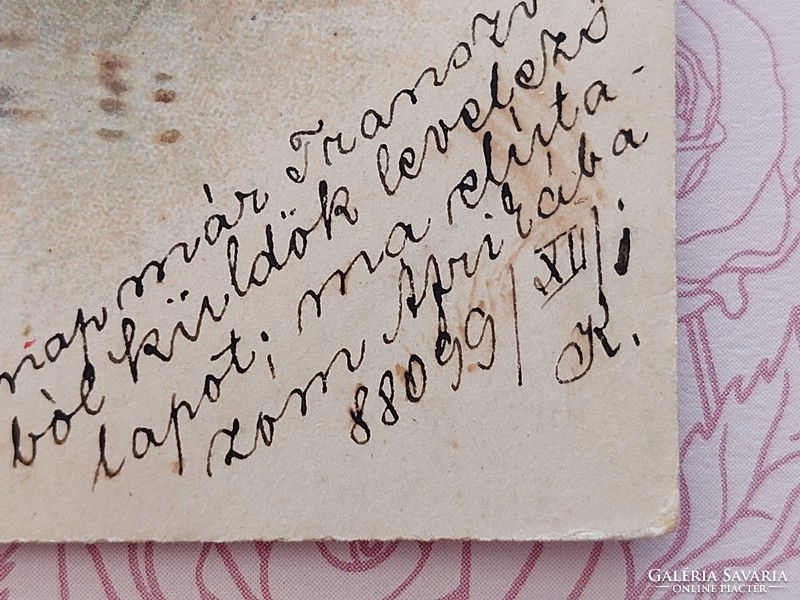 nap már Transzv
ból küldök levelező
lapot; ma elúta-
zom Afrikába
88099/XII/1
K.
GALÉRIA SAVARIA
ONLINE PIACTÉR